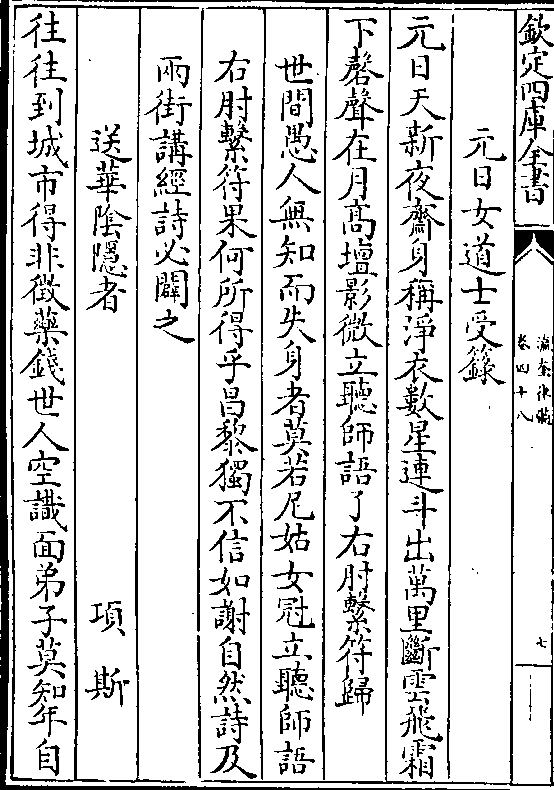 欽定四庫全書
瀛奎律髓
卷四十八
七
元日女道士受籙
元日天新夜齋身稱淨衣數星連斗出萬里斷雲飛霜
下磬聲在月高壇影微立聽師語了右肘繫符歸
世間愚人無知而失身者莫若尼姑女冠立聽師語
右肘繫符果何所得乎昌黎獨不信如謝自然詩及
兩街講經詩必闢之
送華陰隱者
項斯
往往到城市得非徵藥錢世人空識面弟子莫知年自